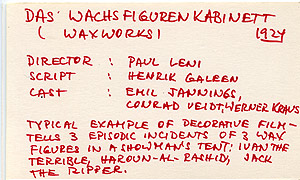 DAS WACHSFIGURENKABINETT
( WAXWORKS) 1924
DIRECTOR : PAUL LENI
SCRIPT : HENRIK GALEEN
CAST : EMIL JANNINGS,
CONRAD VEIDT, WERNER KRAUS
TYPICAL EXAMPLE OF DECORATIVE FILM-
TELLS 3 EPISODIC INCIDENTS OF 3 WAX
FIGURES IN A SHOWMAN'S TENT: IVAN THE
TERRIBLE, HAROUN-AL-RASHID, JACK
THE RIPPER.